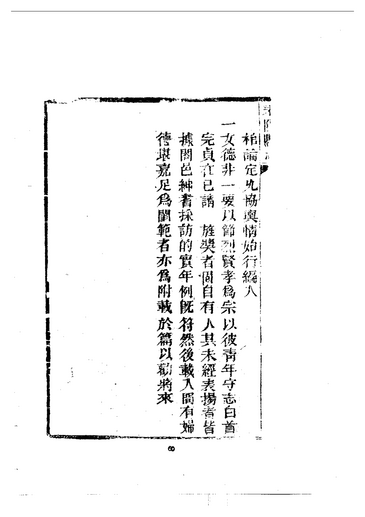 裕論定允協輿情始行編入
一女德非一要以節烈賢孝爲宗以彼靑年守志白首
完貞在已請 旌奬者固自有人其未經表揚者皆
據闔邑紳耆採訪的實年例旣符然後載入間有婦
德堪嘉足爲閫範者亦爲附載於篇以勸將來
8